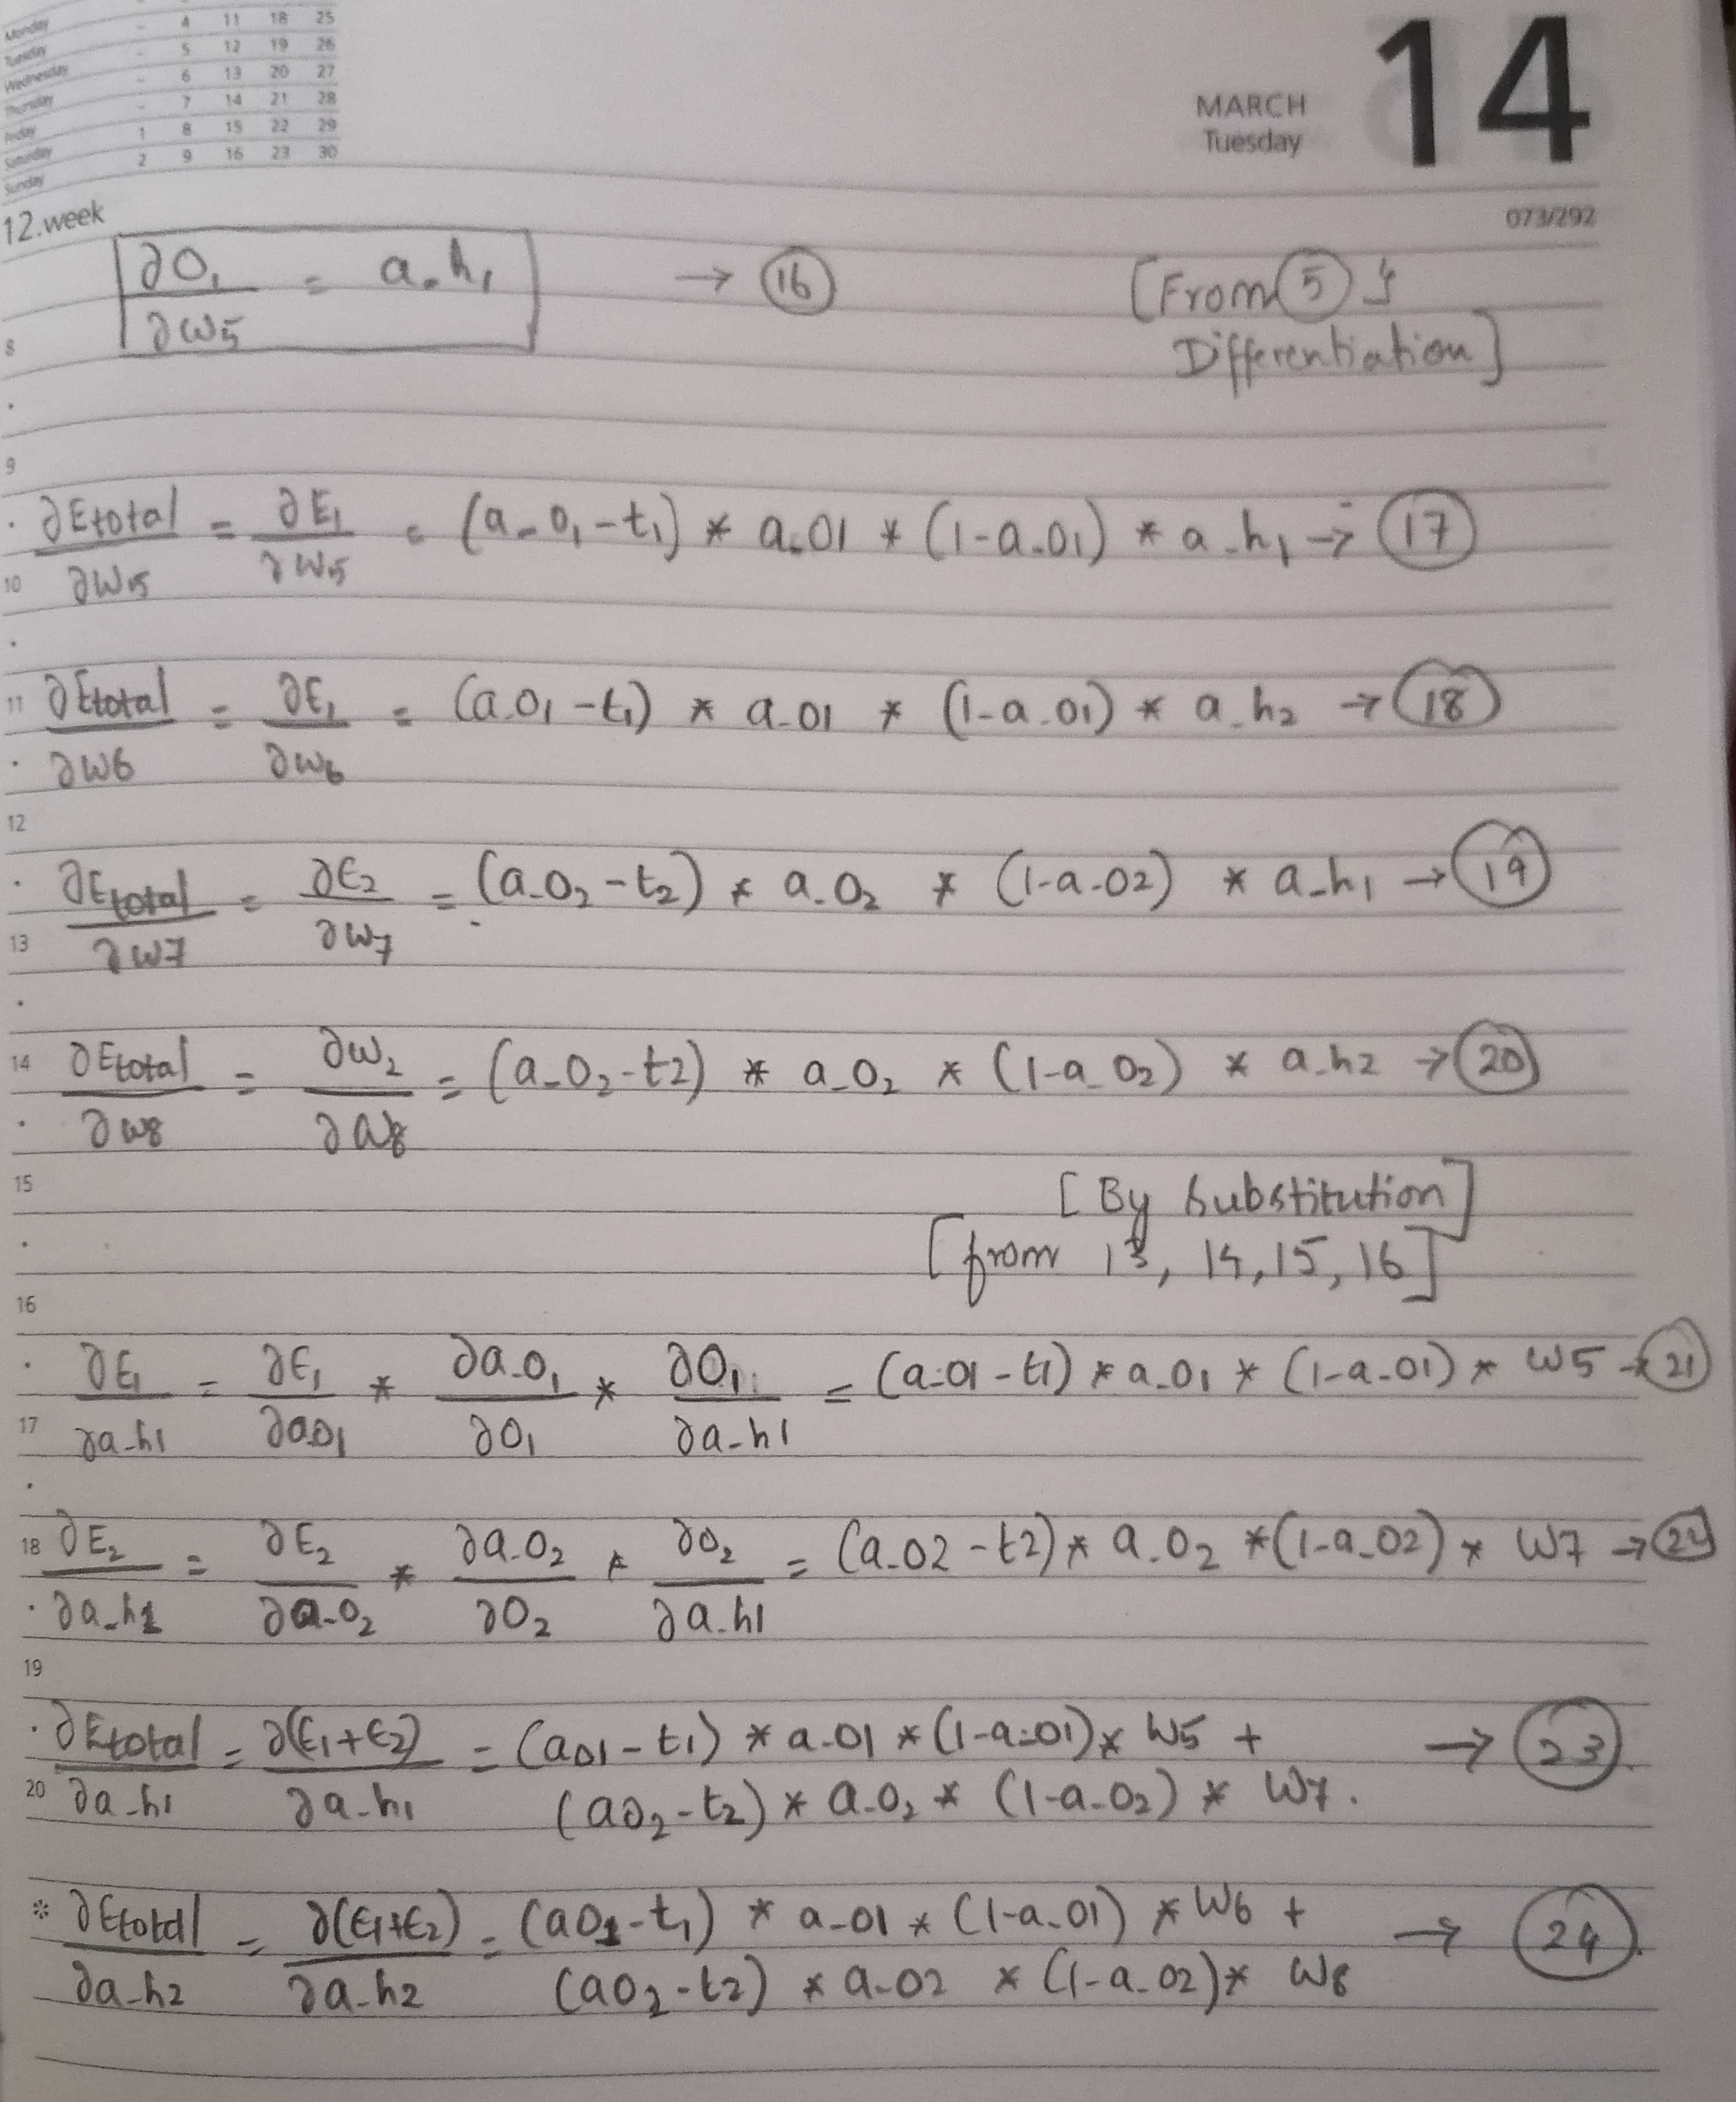 Monday - 4 11 18 25
Tuesday - 5 12 19 26
Wednesday - 6 13 20 27
Thursday - 7 14 21 28
Friday 1 8 15 22 29
Saturday 2 9 16 23 30
Sunday
14
MARCH
Tuesday
073/292
12.week
∂O₁/∂w5 = a_h₁ → (16) [From (5) &
Differentiation]
8
9
∂Etotal/∂w5 = ∂E₁/∂w5 = (a_o₁ - t₁) * a_o1 * (1-a_o1) * a_h₁ → (17)
10
11
∂Etotal/∂w6 = ∂E₁/∂w6 = (a_o₁ - t₁) * a_o1 * (1-a_o1) * a_h₂ → (18)
12
∂Etotal/∂w7 = ∂E₂/∂w7 = (a_o₂ - t₂) * a_o₂ * (1-a_o2) * a_h₁ → (19)
13
14
∂Etotal/∂w8 = ∂w₂/∂w8 = (a_o₂ - t2) * a_o₂ * (1-a_o₂) * a_h2 → (20)
15
[By substitution]
[from 13, 14, 15, 16]
16
∂E₁/∂a_h1 = ∂E₁/∂ao1 * ∂a_o₁/∂o₁ * ∂O₁/∂a_h1 = (a_o1 - t1) * a_o₁ * (1-a_o1) * w5 → (21)
17
18
∂E₂/∂a_h1 = ∂E₂/∂a_o₂ * ∂a_o₂/∂o₂ * ∂o₂/∂a_h1 = (a_o2 - t2) * a_o₂ * (1-a_o2) * w7 →
19
∂Etotal/∂a_h1 = ∂(E₁+E₂)/∂a_h₁ = (ao1 - t₁) * a_o1 * (1-a_o1) * w5 + → (23)
(ao₂ - t₂) * a_o₂ * (1-a_o₂) * w7.
20
* ∂Etotal/∂a_h2 = ∂(E₁+E₂)/∂a_h2 = (ao1 - t₁) * a_o1 * (1-a_o1) * w6 + → (24)
(ao₂ - t₂) * a_o2 * (1-a_o2) * w8